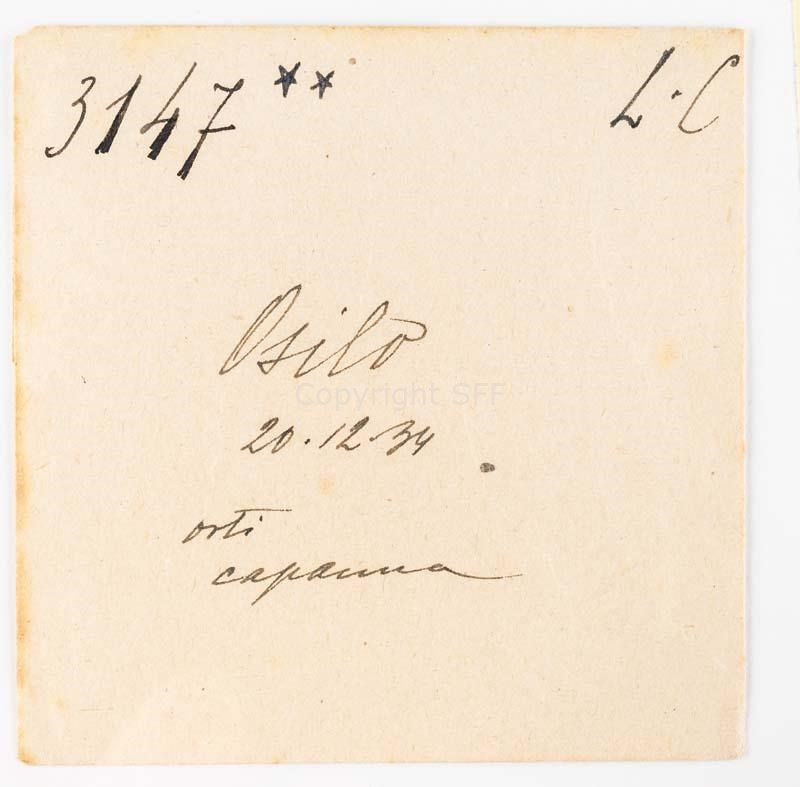 3147 ** L.C
Osilo
Copyright SFF
20.12.34
orti
capanna